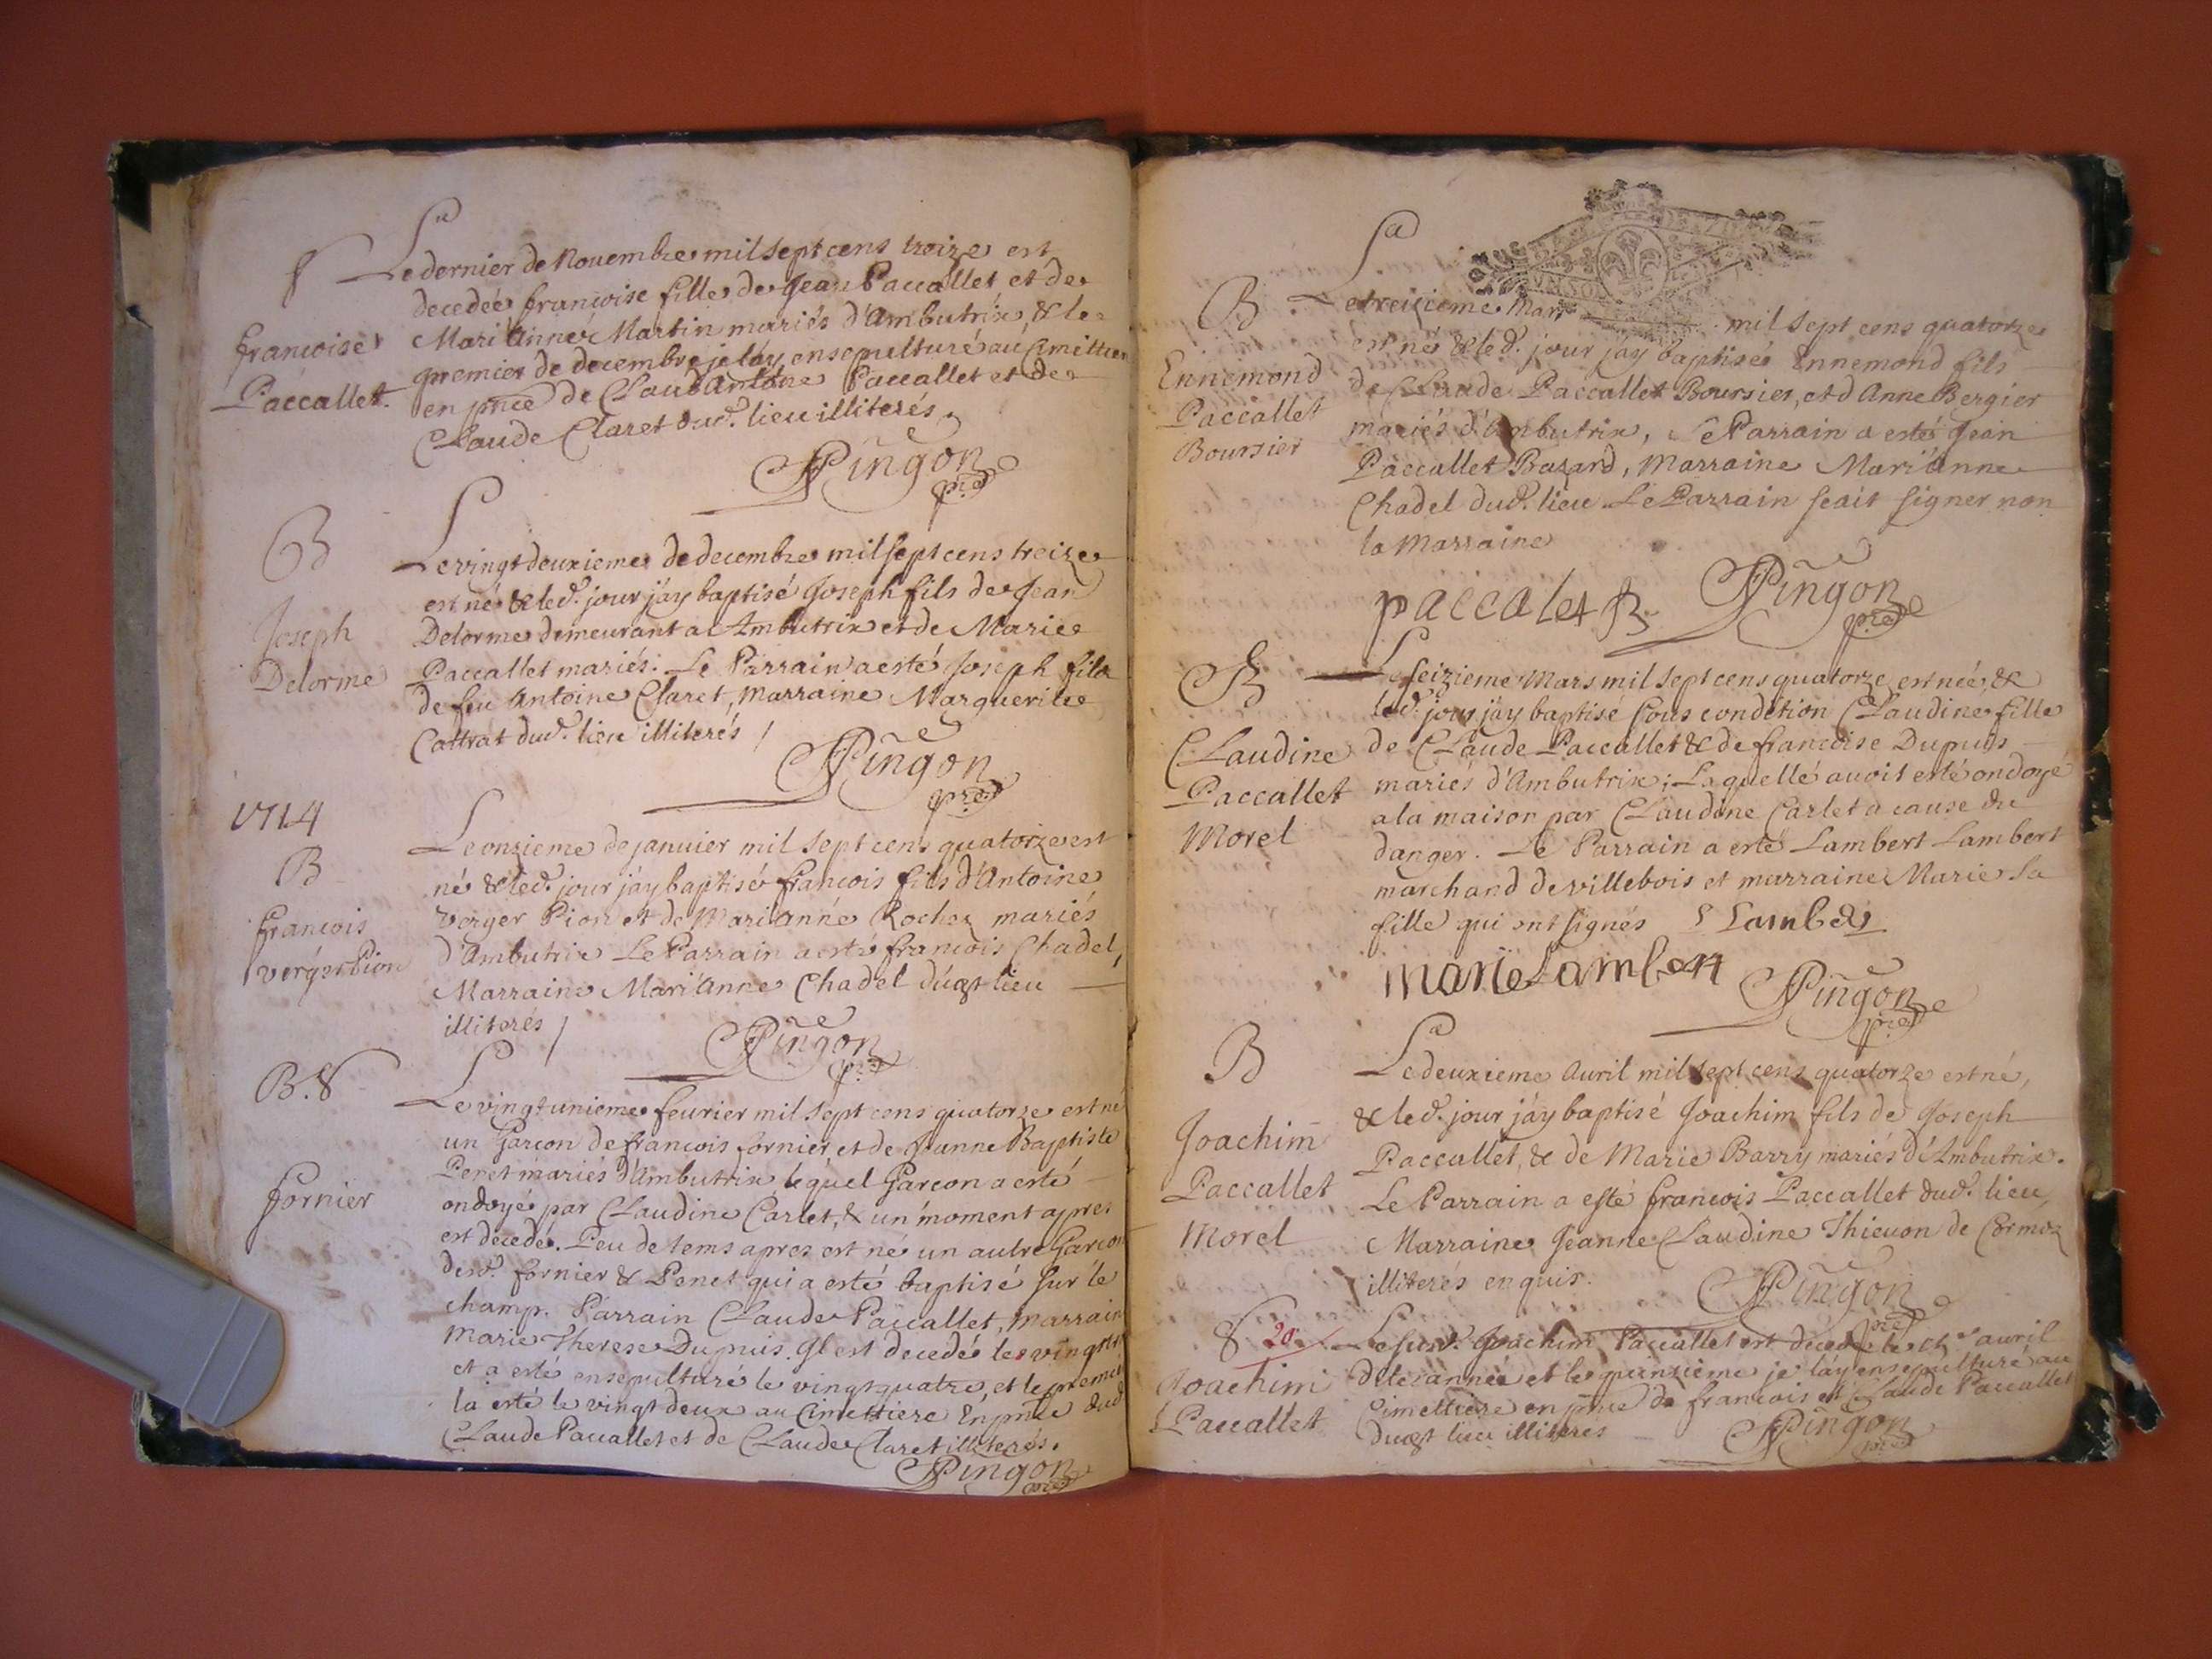 S
françoise
Paccallet.
Le dernier de Nouembre mil sept cens treize est
decedée françoise fille de Jean Paccallet et de
Mari'Anne Martin mariés d'Ambutrix, & le
premier de decembre je l'ay ensepulturé au Cimittiere
en pñce de Claud'Antoine Paccallet et de
Claude Claret dud. lieu illiterés.
Pingon
pre
B
Joseph
Delorme
Le vingt deuxieme de decembre mil sept cens treize
est né & led. jour j'ay baptisé Joseph fils de Jean
Delorme demeurant a Ambutrix et de Marie
Paccallet mariés. Le Parrain a esté Joseph fils
de feu Antoine Claret, marraine Marguerite
Cattrat dud. lieu illiterés /
Pingon
pre
1714
B
françois
verger Pion
Le onzieme de januier mil sept cens quatorze est
né & led. jour j'ay baptisé françois fils d'Antoine
verger Pion et de Mari'anne Rocher mariés
d'Ambutrix Le Parrain a esté françois Chadel,
Marraine Mari'Anne Chadel dudt lieu
illiterés /
Pingon
pre
B. S
fornier
Le vingt unieme feurier mil sept cens quatorze est né
un Garçon de françois fornier, et de Jeanne Baptiste
Penet mariés d'Ambutrix lequel Garçon a esté
ondoyé par Claudine Carlet, & un moment apres
est decedé. Peu de tems apres est né un autre Garçon
desd. fornier & Penet qui a esté baptisé sur le
champ. Parrain Claude Paccallet, marraine
Marie Therese Dupuis. Il est decedé le vingt
et a esté ensepulturé le vingt quatre, et le premier
la esté le vingt deux au Cimettiere En pñce dud.
Claude Paccallet et de Claude Claret illiterés.
Pingon
pre
B
Ennemond
Paccallet
Boursier
Le treizieme Mars mil sept cens quatorze
est né & led. jour j'ay baptisé Ennemond fils
de Claude Paccallet Boursier, et d'Anne Bergier
mariés d'Ambutrix, Le Parrain a esté Jean
Paccallet Bazard, Marraine Mari'Anne
Chadel dud. lieu. Le Parrain sçait signer non
la Marraine
paccalet B
Pingon
pre
B
Claudine
Paccallet
Morel
Le seizieme Mars mil sept cens quatorze est née, &
led. jour j'ay baptisé sous condition Claudine fille
de Claude Paccallet & de françoise Dupuis
mariés d'Ambutrix; Laquelle auoit esté ondoyé
a la maison par Claudine Carlet a cause du
danger. Le Parrain a esté Lambert Lambert
marchand de villebois et marraine Marie sa
fille qui ont signés
L Lambert
marie Lambert
Pingon
pre
B
Joachim
Paccallet
Morel
Le deuxieme Auril mil sept cens quatorze est né,
& led. jour j'ay baptisé Joachim fils de Joseph
Paccallet, & de Marie Barry mariés d'Ambutrix.
Le Parrain a esté françois Paccallet dud. lieu,
Marraine Jeanne Claudine Thieuon de Cormoz
illiterés enquis.
Pingon
pre
S 20
Joachim
Paccallet
Le susd. Joachim Paccallet est decedé le auril
dite année et le quinzieme je l'ay ensepulturé au
Cimettiere en pñce de françois et Claude Paccallet
dudt lieu illiteres
Pingon
pre